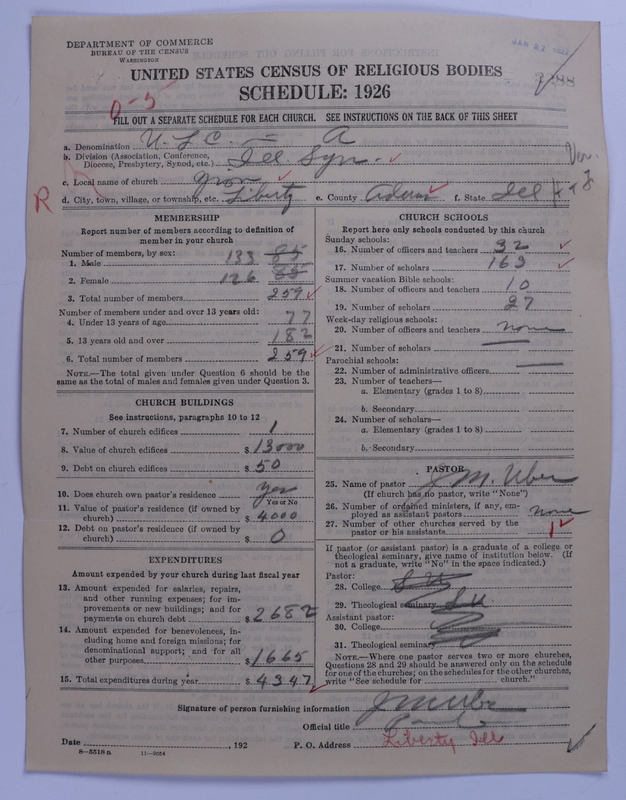 DEPARTMENT OF COMMERCE
BUREAU OF THE CENSUS
WASHINGTON
JAN 22 1927
UNITED STATES CENSUS OF RELIGIOUS BODIES
SCHEDULE: 1926
0-5
FILL OUT A SEPARATE SCHEDULE FOR EACH CHURCH. SEE INSTRUCTIONS ON THE BACK OF THIS SHEET
a. Denomination U. L. C. = A
b. Division (Association, Conference, Diocese, Presbytery, Synod, etc.) Ill. Syn.
c. Local name of church Zion
R
d. City, town, village, or township, etc. Liberty e. County Adams f. State Ill
MEMBERSHIP
Report number of members according to definition of member in your church
Number of members, by sex:
1. Male 133 85
2. Female 126
3. Total number of members 259
Number of members under and over 13 years old:
4. Under 13 years of age 77
5. 13 years old and over 182
6. Total number of members 259
NOTE.—The total given under Question 6 should be the same as the total of males and females given under Question 3.
CHURCH BUILDINGS
See instructions, paragraphs 10 to 12
7. Number of church edifices 1
8. Value of church edifices $ 13000
9. Debt on church edifices $ 50
10. Does church own pastor's residence Yes
Yes or No
11. Value of pastor's residence (if owned by church) $ 4000
12. Debt on pastor's residence (if owned by church) $ 0
EXPENDITURES
Amount expended by your church during last fiscal year
13. Amount expended for salaries, repairs, and other running expenses; for improvements or new buildings; and for payments on church debt $ 2682
14. Amount expended for benevolences, including home and foreign missions; for denominational support; and for all other purposes $ 1665
15. Total expenditures during year $ 4347
CHURCH SCHOOLS
Report here only schools conducted by this church
Sunday schools:
16. Number of officers and teachers 32
17. Number of scholars 163
Summer vacation Bible schools:
18. Number of officers and teachers 10
19. Number of scholars 27
Week-day religious schools:
20. Number of officers and teachers none
21. Number of scholars
Parochial schools:
22. Number of administrative officers
23. Number of teachers—
a. Elementary (grades 1 to 8)
b. Secondary
24. Number of scholars—
a. Elementary (grades 1 to 8)
b. Secondary
PASTOR
25. Name of pastor J M. Uber
(If church has no pastor, write "None")
26. Number of ordained ministers, if any, employed as assistant pastors none
27. Number of other churches served by the pastor or his assistants 1
If pastor (or assistant pastor) is a graduate of a college or theological seminary, give name of institution below. (If not a graduate, write "No" in the space indicated.)
Pastor:
28. College
29. Theological seminary
Assistant pastor:
30. College
31. Theological seminary
NOTE.—Where one pastor serves two or more churches, Questions 28 and 29 should be answered only on the schedule for one of the churches; on the schedules for the other churches, write "See schedule for church."
Signature of person furnishing information J M Uber
Official title
Date , 192 P. O. Address Liberty Ill
8-5518 a 11-9054